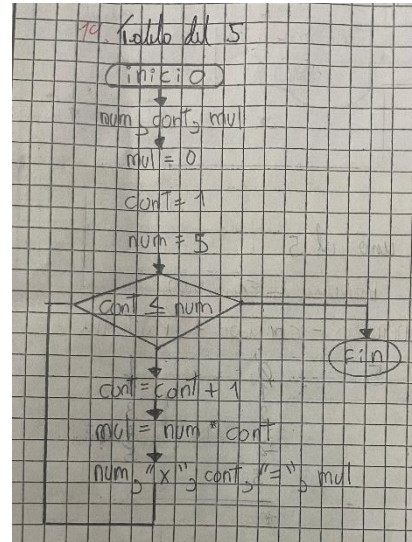 19. Tabla del 5
inicio
num, cont, mul
mul = 0
cont = 1
num = 5
cont ≤ num
Fin
cont = cont + 1
mul = num * cont
num, "x", cont, "=", mul